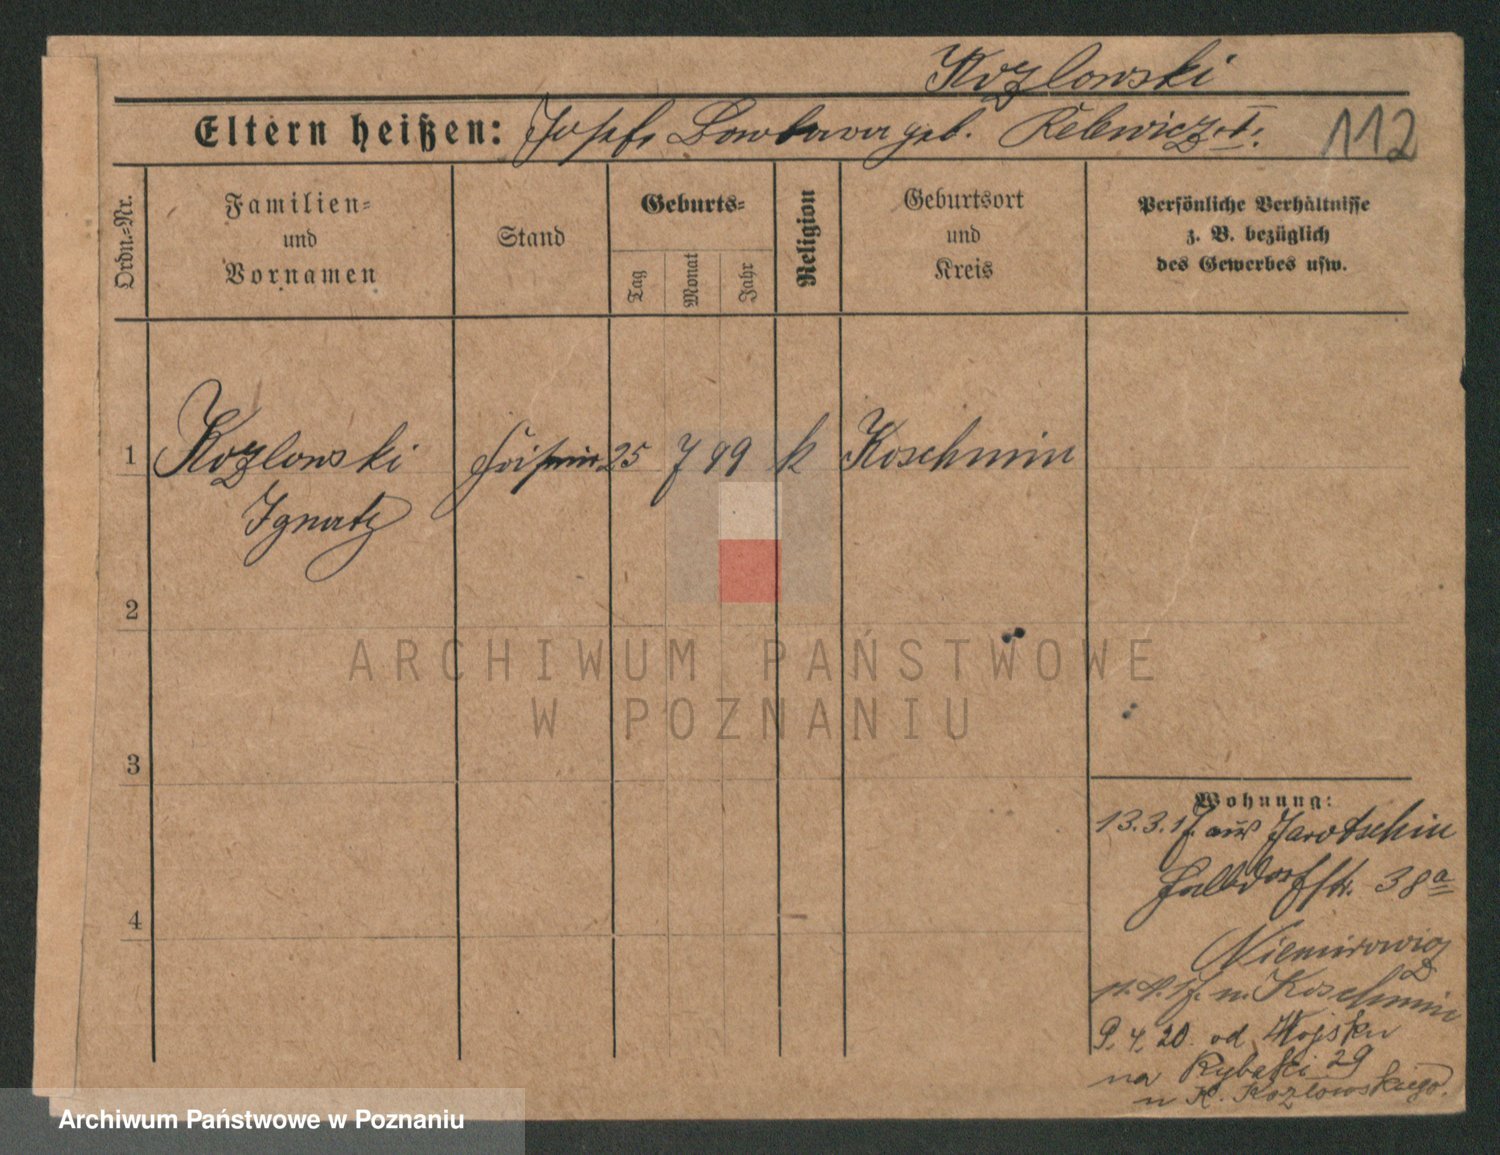 Kozlowski
Eltern heißen: Josef, geb. I. 112
Ordn.=Nr.
Familien=
und
Vornamen
Stand
Geburts=
Tag
Monat
Jahr
Religion
Geburtsort
und
Kreis
Persönliche Verhältnisse
z. B. bezüglich
des Gewerbes usw.
1 Kozlowski 25 7 99 k Koschmin
Ignatz
2
3
4
Wohnung:
13.3.17. aus Jarotschin
38a
Niemirowicz
n. Koschmin
9. 4. 20. od Wojska
na Rybaki 29
u K. Kozlowskiego.
ARCHIWUM PAŃSTWOWE
W POZNANIU
Archiwum Państwowe w Poznaniu